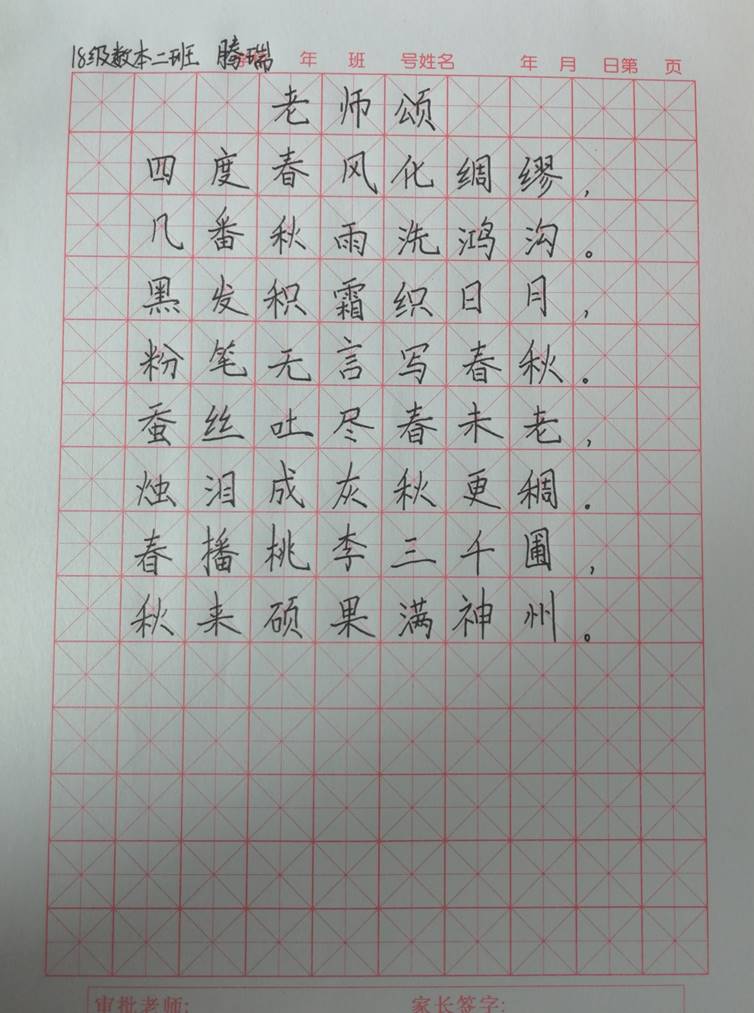 18级数本二班 腾瑞 年 班 号姓名 年 月 日第 页
老师颂
四度春风化绸缪，
几番秋雨洗鸿沟。
黑发积霜织日月，
粉笔无言写春秋。
蚕丝吐尽春未老，
烛泪成灰秋更稠。
春播桃李三千圃，
秋来硕果满神州。
审批老师: 家长签字: